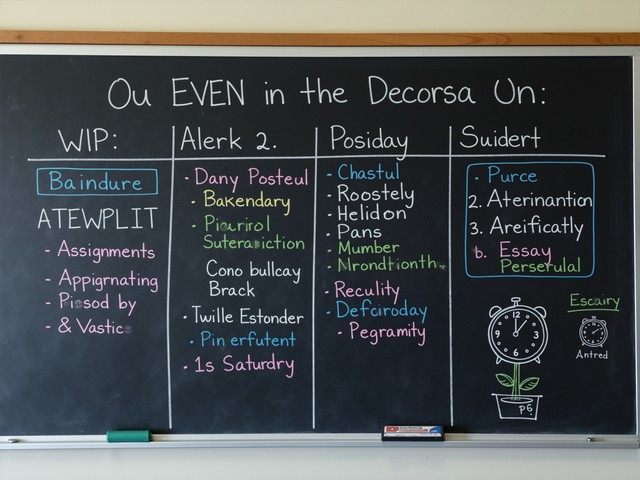 Ou EVEN in the Decorsa Un:
WIP:
Baindure
ATEWPLIT
- Assignments
- Appigrnating
- Piosod by
- & Vastic
Alerk 2.
· Dany Posteul
· Bakendary
· Picurirol
Suteraiction
Cono bullcay
Brack
· Twille Estonder
· Pin erfutent
· 1s Saturdry
Posiday
- Chastul
- Roostely
- Helidon
- Pans
- Mumber
- Nrondtionth
- Reculity
- Defciroday
- Pegramity
Suidert
· Purce
2. Aterinantion
3. Areificatly
b. Essay
Perserulal
12
1
3
6
9
p6
Escairy
Antred